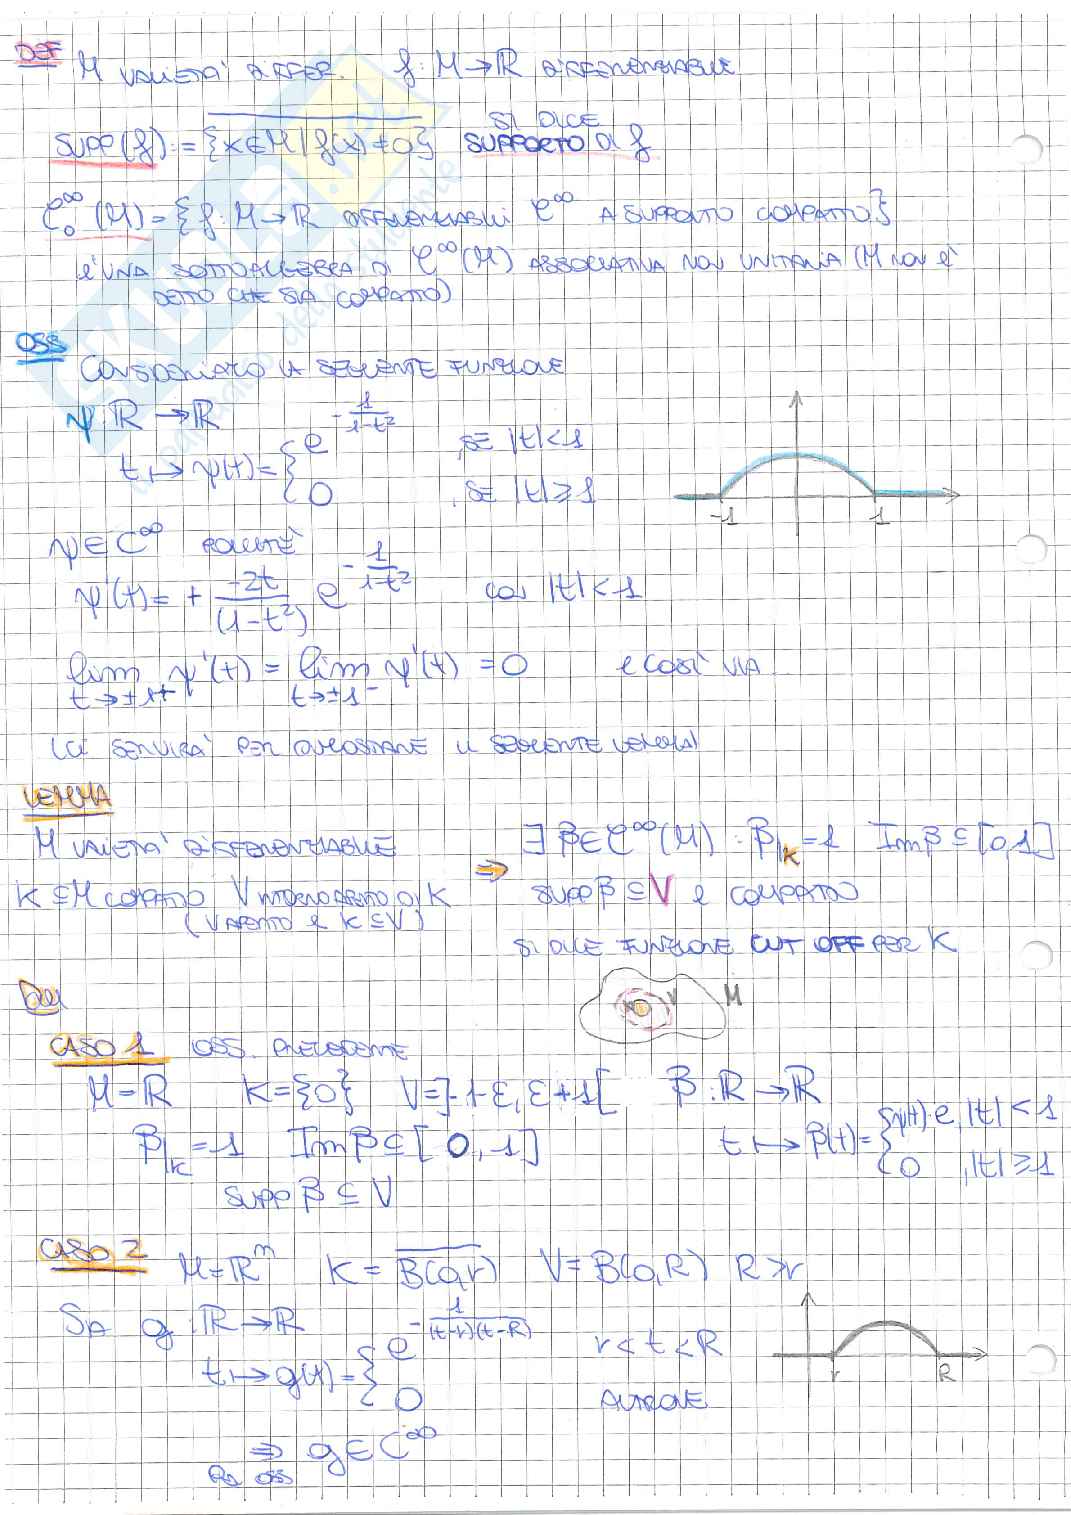 DEF
M VARIETA' DIFFER. f: M → R DIFFERENZIABILE
SUPP(f) := {x∈M | f(x) ≠ 0} SI DICE SUPPORTO DI f
C₀^∞(M) = {f: M → R DIFFERENZIABILI C^∞ A SUPPORTO COMPATTO}
E' UNA SOTTOALGEBRA DI C^∞(M) ASSOCIATIVA NON UNITARIA (M NON E'
DETTO CHE SIA COMPATTO)
OSS
CONSIDERIAMO LA SEGUENTE FUNZIONE
ψ: R → R
t ↦ ψ(t) = { e^{-1/(1-t²)} , SE |t| < 1
0 , SE |t| ≥ 1
-1 1
ψ ∈ C^∞ POICHE'
ψ'(t) = + -2t/(1-t²) e^{-1/(1-t²)} CON |t| < 1
lim_{t→±1+} ψ'(t) = lim_{t→±1-} ψ'(t) = 0 E COSI' VIA
(CI SERVIRA' PER DIMOSTRARE IL SEGUENTE LEMMA)
LEMMA
M VARIETA' DIFFERENZIABILE
K ⊆ M COMPATTO V INTORNO APERTO DI K
(V APERTO E K ⊆ V)
⇒ ∃ β ∈ C^∞(M) : β|_K = 1 Im β ⊆ [0,1]
SUPP β ⊆ V E COMPATTO
SI DICE FUNZIONE CUT OFF PER K
DIM
K V M
CASO 1 OSS. PRECEDENTE
M = R K = {0} V = ]-1-ε, ε+1[ β: R → R
β|_K = 1 Im β ⊆ [0,1] t ↦ β(t) = { ψ(t)·e, |t| < 1
0 , |t| ≥ 1
SUPP β ⊆ V
CASO 2 M = R^n K = B(0,r) V = B(0,R) R > r
SIA g: R → R
t ↦ g(t) = { e^{-1/((t-r)(t-R))} r < t < R
0 ALTROVE
r R
⇒ g ∈ C^∞
DA OSS